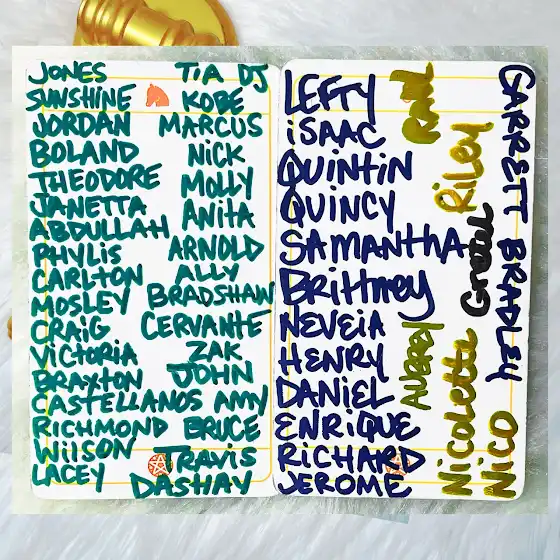 JONES
SUNSHINE
JORDAN
BOLAND
THEODORE
JANETTA
ABDULLAH
PHYLIS
CARLTON
MOSLEY
CRAIG
VICTORIA
BRAXTON
CASTELLANOS
RICHMOND
WILSON
LACEY
TIA DJ
KOBE
MARCUS
NICK
MOLLY
ANITA
ARNOLD
ALLY
BRADSHAW
CERVANTE
ZAK
JOHN
AMY
BRUCE
TRAVIS
DASHAY
LEFTY
ISAAC
QUINTIN
QUINCY
SAMANTHA
Brittney
NEVEIA
HENRY
DANIEL
ENRIQUE
RICHARD
JEROME
Raul
Riley
Gretel
AUBREY
Nicolette
NICO
GARRETT BRADLEY